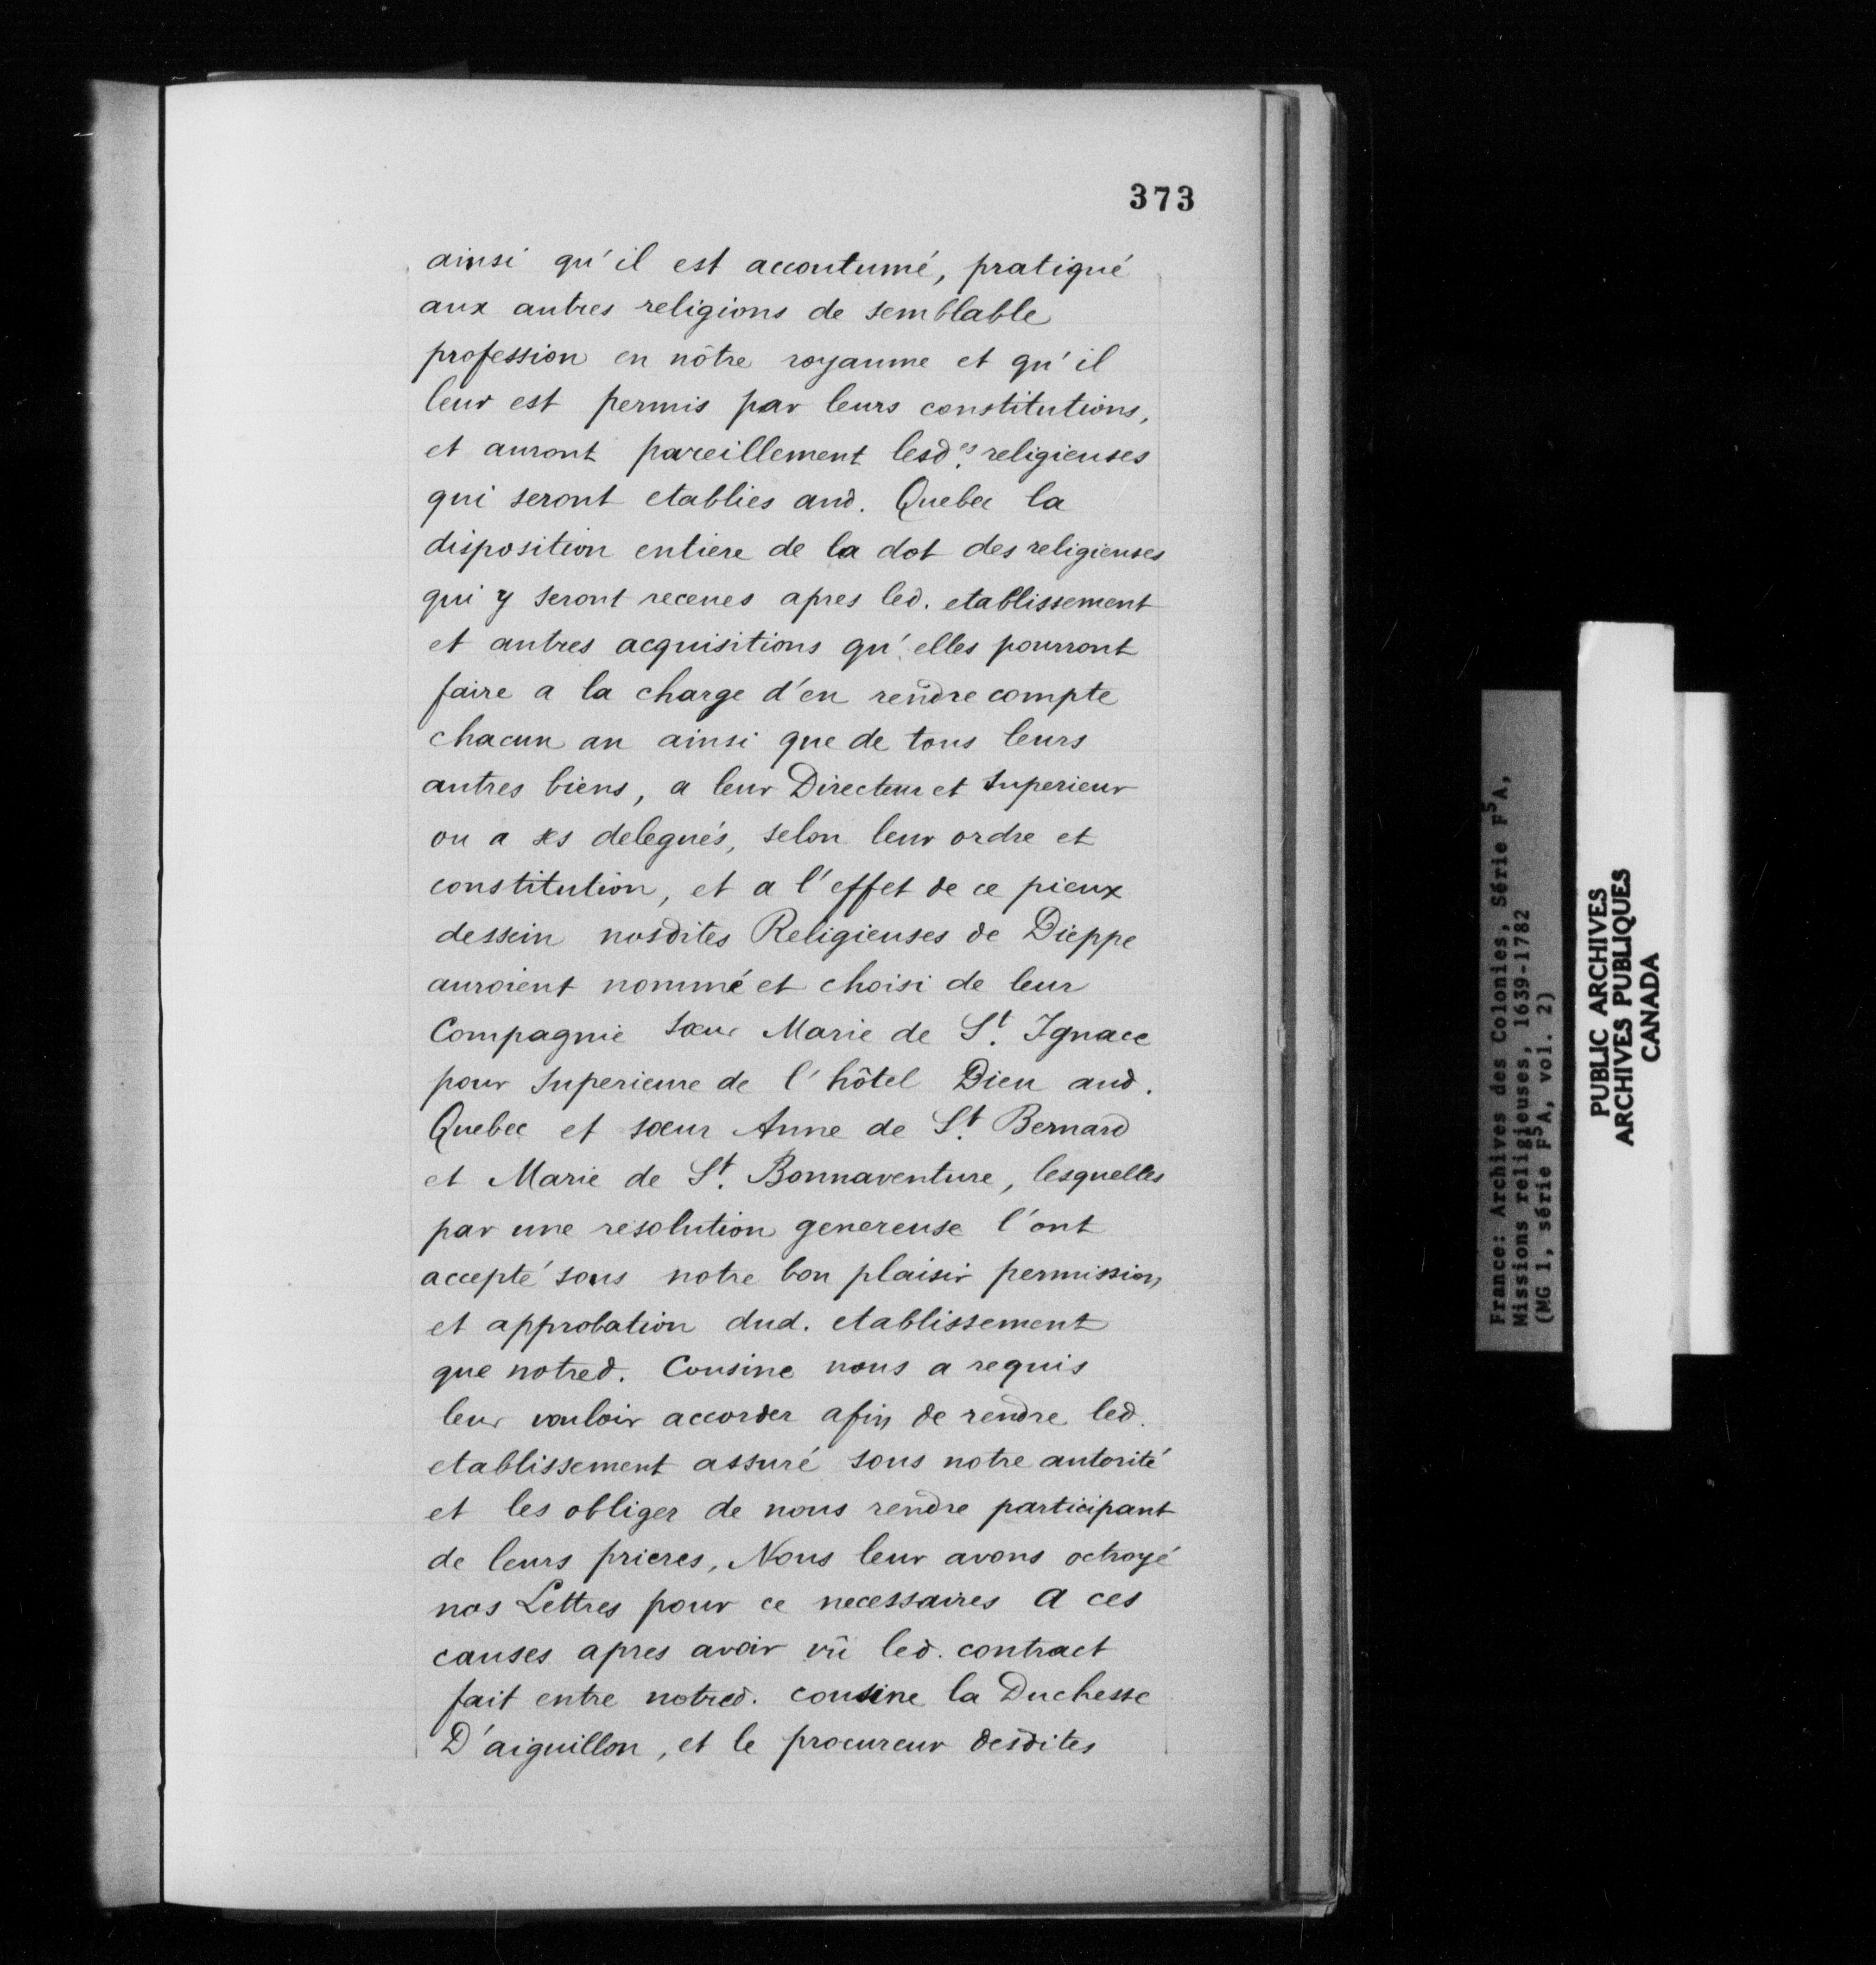 373
ainsi qu'il est accoutumé, pratiqué
aux autres religions de semblable
profession en nôtre royaume et qu'il
leur est permis par leurs constitutions,
et auront pareillement lesd.es religieuses
qui seront etablies aud. Quebec la
disposition entiere de la dot des religieuses
qui y seront receues apres led. etablissement
et autres acquisitions qu'elles pourront
faire a la charge d'en rendre compte
chacun an ainsi que de tous leurs
autres biens, a leur Directeur et Superieur
ou a ses delegués, selon leur ordre et
constitution, et a l'effet de ce pieux
dessein nosdites Religieuses de Dieppe
auroient nommé et choisi de leur
Compagnie Sœur Marie de St. Ignace
pour Superieure de l'hôtel Dieu aud.
Quebec et sœur Anne de St. Bernard
et Marie de St. Bonnaventure, lesquelles
par une resolution genereuse l'ont
accepté sous notre bon plaisir permission
et approbation dud. etablissement
que notred. Cousine nous a requis
leur vouloir accorder afin de rendre led.
etablissement assuré sous notre autorité
et les obliger de nous rendre participant
de leurs prieres, Nous leur avons octroyé
nos Lettres pour ce necessaires A ces
causes apres avoir vû led. contract
fait entre notred. cousine la Duchesse
D'aiguillon, et le procureur desdites
France: Archives des Colonies, Série F5A,
Missions religieuses, 1639-1782
(MG 1, série F5A, vol. 2)
PUBLIC ARCHIVES
ARCHIVES PUBLIQUES
CANADA